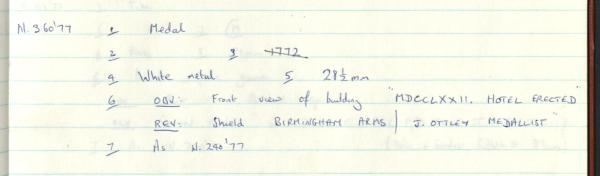 N. 360'77 1 Medal
2 3 1772
4 White metal 5 28½ mm
6 OBV: Front view of building "MDCCLXXII. HOTEL ERECTED"
REV: Shield BIRMINGHAM ARMS | J. OTTLEY MEDALLIST"
7 As N. 240'77